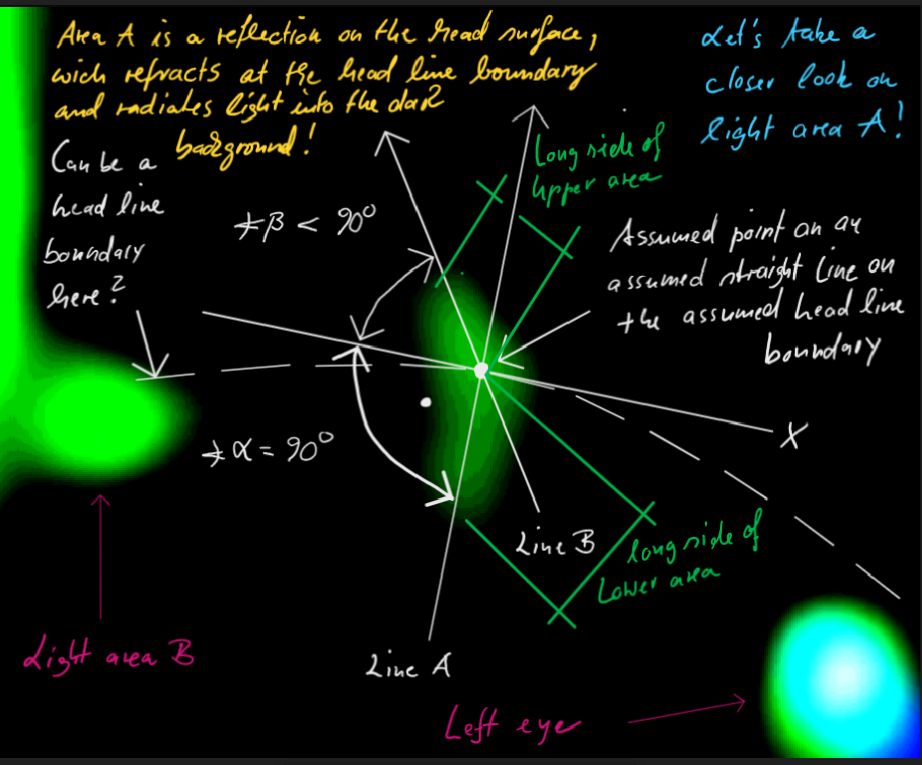 Area A is a reflection on the head surface,
wich refracts at the head line boundary
and radiates light into the dark
background!
Let's take a
closer look on
light area A!
Can be a
head line
boundary
here?
∡β < 90°
Long side of
upper area
Assumed point on an
assumed straight line on
the assumed head line
boundary
∡α = 90°
X
Line B
long side of
Lower area
Light area B
Line A
Left eye